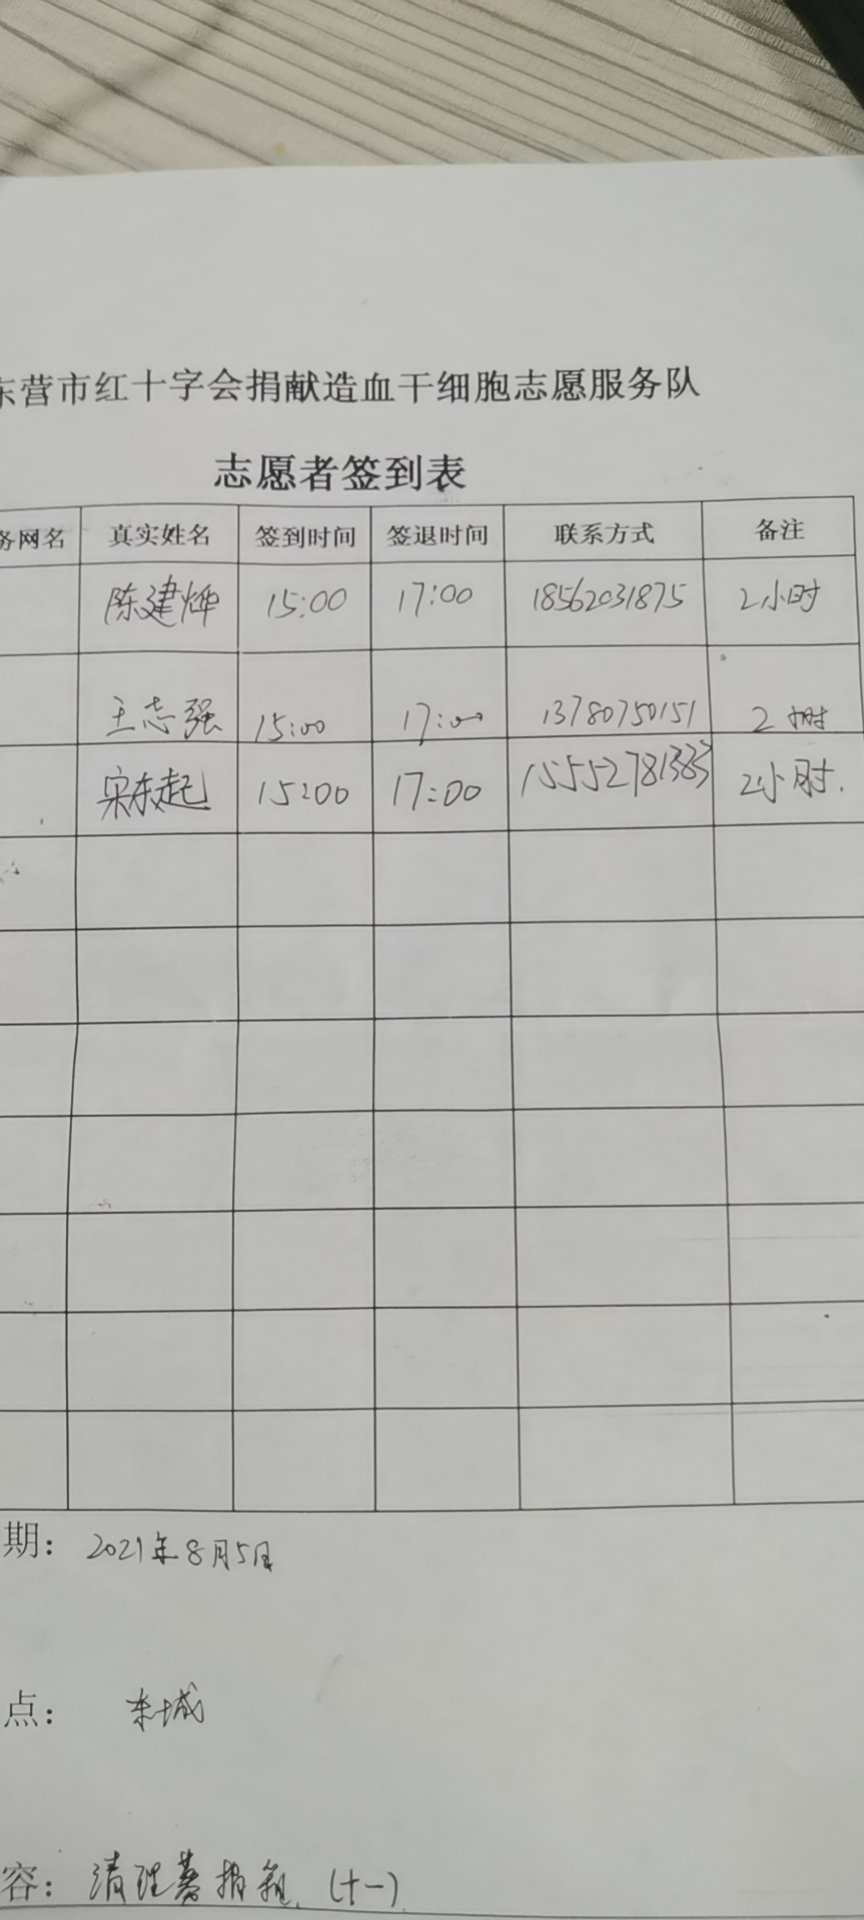 东营市红十字会捐献造血干细胞志愿服务队
志愿者签到表
务网名 真实姓名 签到时间 签退时间 联系方式 备注
陈建烨 15:00 17:00 18562031875 2小时
王志强 15:00 17:00 13780750151 2小时
宋东起 15:00 17:00 15552781383 2小时.
期: 2021年8月5日
点: 东城
容: 清理募捐箱 (十一)